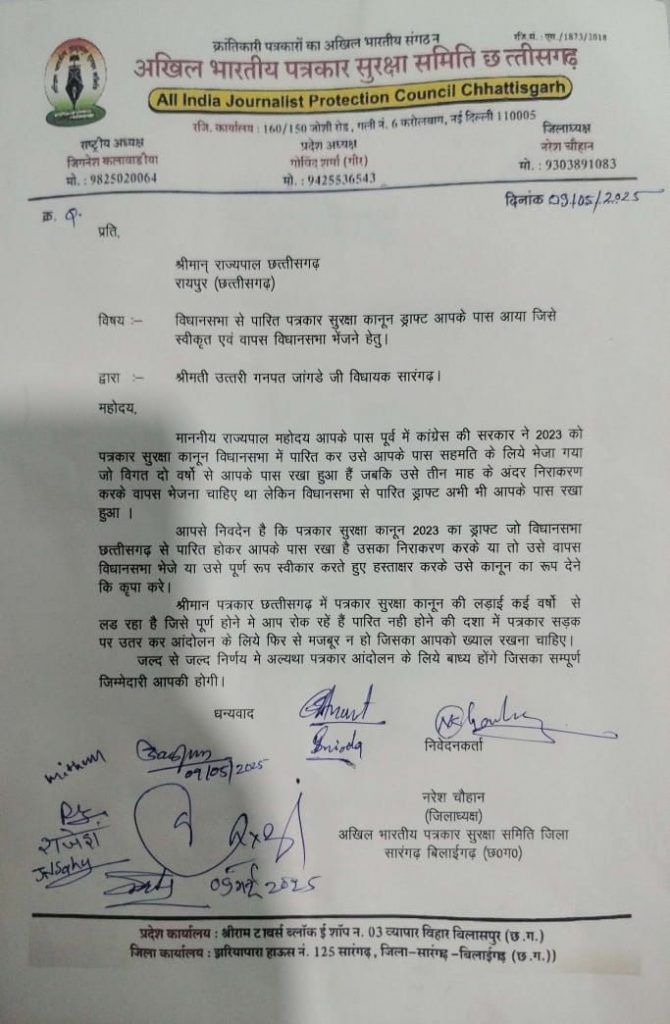 क्रांतिकारी पत्रकारों का अखिल भारतीय संगठन
रजि.नं. : एस./1873/2018
अखिल भारतीय पत्रकार सुरक्षा समिति छत्तीसगढ़
All India Journalist Protection Council Chhattisgarh
रजि. कार्यालय : 160/150 जोशी रोड, गली नं. 6 करोलबाग, नई दिल्ली 110005
राष्ट्रीय अध्यक्ष
जिगनेश कलावाडीया
मो. : 9825020064
प्रदेश अध्यक्ष
गोविंद शर्मा (गौर)
मो. : 9425536543
जिलाध्यक्ष
नरेश चौहान
मो. : 9303891083
क्र.
दिनांक 09/05/2025
प्रति,
श्रीमान् राज्यपाल छत्तीसगढ़
रायपुर (छत्तीसगढ़)
विषय :– विधानसभा से पारित पत्रकार सुरक्षा कानून ड्राफ्ट आपके पास आया जिसे
स्वीकृत एवं वापस विधानसभा भेंजने हेतु।
द्वारा :– श्रीमती उत्तरी गनपत जांगडे जी विधायक सारंगढ़।
महोदय,
माननीय राज्यपाल महोदय आपके पास पूर्व में कांग्रेस की सरकार ने 2023 को
पत्रकार सुरक्षा कानून विधानसभा में पारित कर उसे आपके पास सहमति के लिये भेजा गया
जो विगत दो वर्षो से आपके पास रखा हुआ हैं जबकि उसे तीन माह के अंदर निराकरण
करके वापस भेजना चाहिए था लेकिन विधानसभा से पारित ड्राफ्ट अभी भी आपके पास रखा
हुआ ।
आपसे निवदेन है कि पत्रकार सुरक्षा कानून 2023 का ड्राफ्ट जो विधानसभा
छत्तीसगढ़ से पारित होकर आपके पास रखा है उसका निराकरण करके या तो उसे वापस
विधानसभा भेजे या उसे पूर्ण रूप स्वीकार करते हुए हस्ताक्षर करके उसे कानून का रूप देने
कि कृपा करे।
श्रीमान पत्रकार छत्तीसगढ़ में पत्रकार सुरक्षा कानून की लड़ाई कई वर्षो से
लड रहा है जिसे पूर्ण होने मे आप रोक रहें हैं पारित नही होने की दशा में पत्रकार सड़क
पर उतर कर आंदोलन के लिये फिर से मजबूर न हो जिसका आपको ख्याल रखना चाहिए।
जल्द से जल्द निर्णय मे अल्यथा पत्रकार आंदोलन के लिए बाध्य होंगे जिसका सम्पूर्ण
जिम्मेदारी आपकी होगी।
धन्यवाद
निवेदनकर्ता
09/05/2025
राजेश
09 मई 2025
नरेश चौहान
(जिलाध्यक्ष)
अखिल भारतीय पत्रकार सुरक्षा समिति जिला
सारंगढ़ बिलाईगढ़ (छ0ग0)
प्रदेश कार्यालय : श्रीराम टावर्स ब्लॉक ई शॉप न. 03 व्यापार विहार बिलासपुर (छ.ग.)
जिला कार्यालय : झरियापारा हाऊस नं. 125 सारंगढ़, जिला-सारंगढ़ -बिलाईगढ़ (छ.ग.))